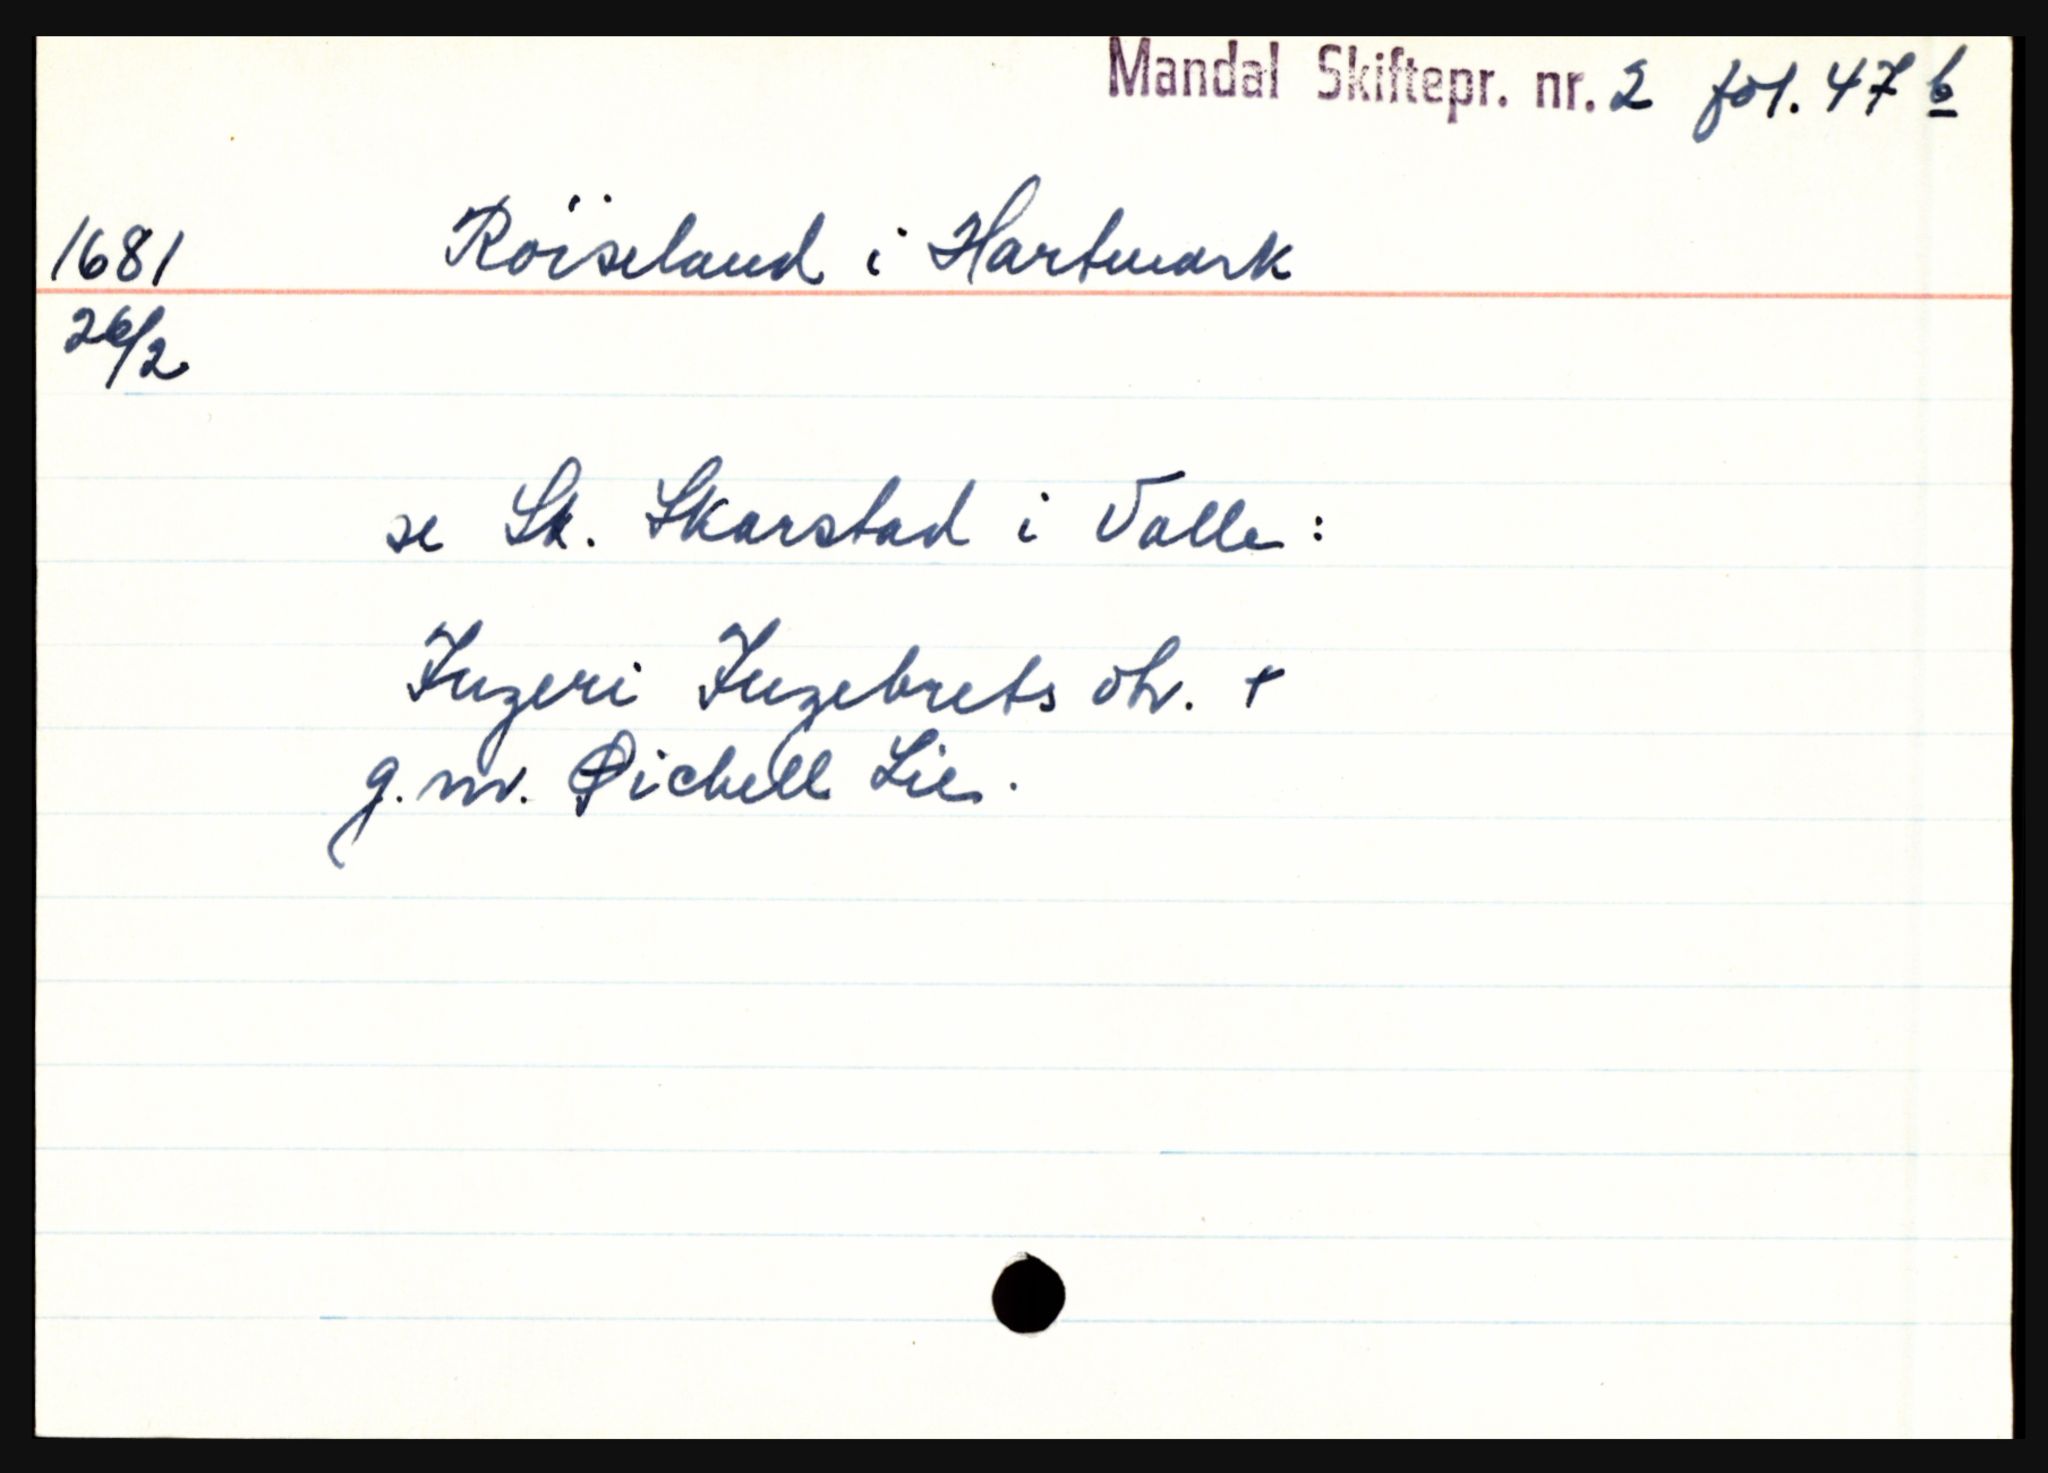 Mandal Skiftepr. nr. 2 fol. 47 b
1681 Röiseland i Hartmark
26/2
se Sk. Skarstad i Valle:
Ingeri Ingebrets dtr. +
g. m. Øichell Lie.